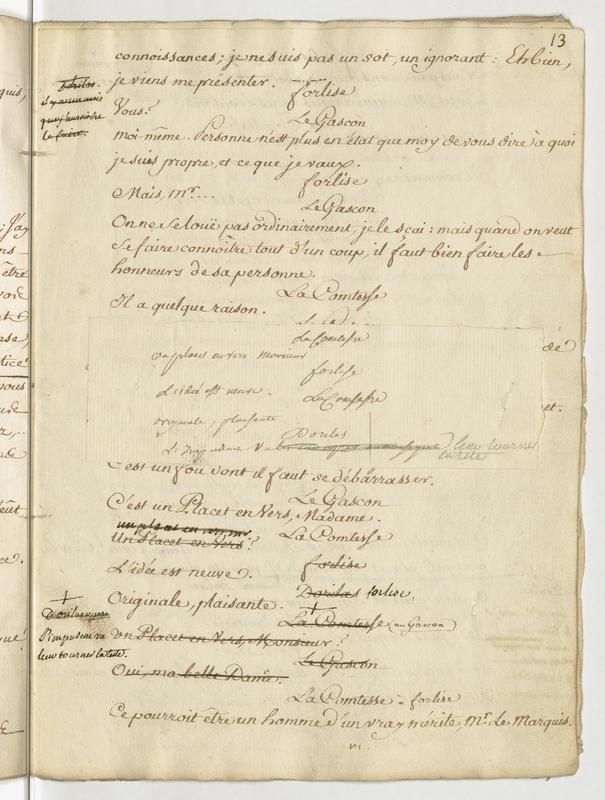 13
connoissances; je ne suis pas un sot, un ignorant : Eh bien,
je viens me présenter.
forlise
Vous?
Le Gascon
moi-même. Personne n'est plus en état que moy de vous dire à quoi
je suis propre, et ce que je vaux.
forlise
Mais, mr....
Le Gascon
On ne se louë pas ordinairement, je le sçai : mais quand on veut
se faire connoître tout d'un coup, il faut bien faire les
honneurs de sa personne.
La Comtesse
Il a quelque raison.
La Comtesse
un placet en vers Monsieur
forlise
L'idée est neuve.
La Comtesse
originale, plaisante
Dorilas
L'impudent va leur tourner
la tête
de
et.
C'est un fou dont il faut se débarrasser.
Le Gascon
C'est un Placet en Vers, Madame.
La Comtesse
un placet en vers, mr.
Un Placet en Vers?
forlise
L'idée est neuve.
Dorilas forlise.
Originale, plaisante.
La Comtesse (au Gascon)
Un Placet en Vers, Monsieur?
Le Gascon
Oui, ma belle Dame.
La Comtesse à forlise
Ce pourroit être un homme d'un vray mérite, Mr. Le Marquis.
Dorilas.
le faire.
Dorilas à part
l'impudent va
leur tourner la tête.